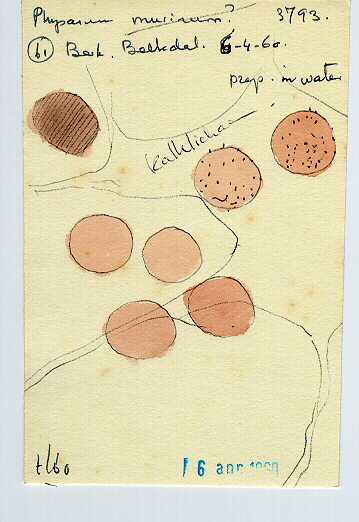 Physarum murinum? 3793.
61 Berk. Balkdal. 6-4-60.
prep. in water
t/60
16 apr 1960